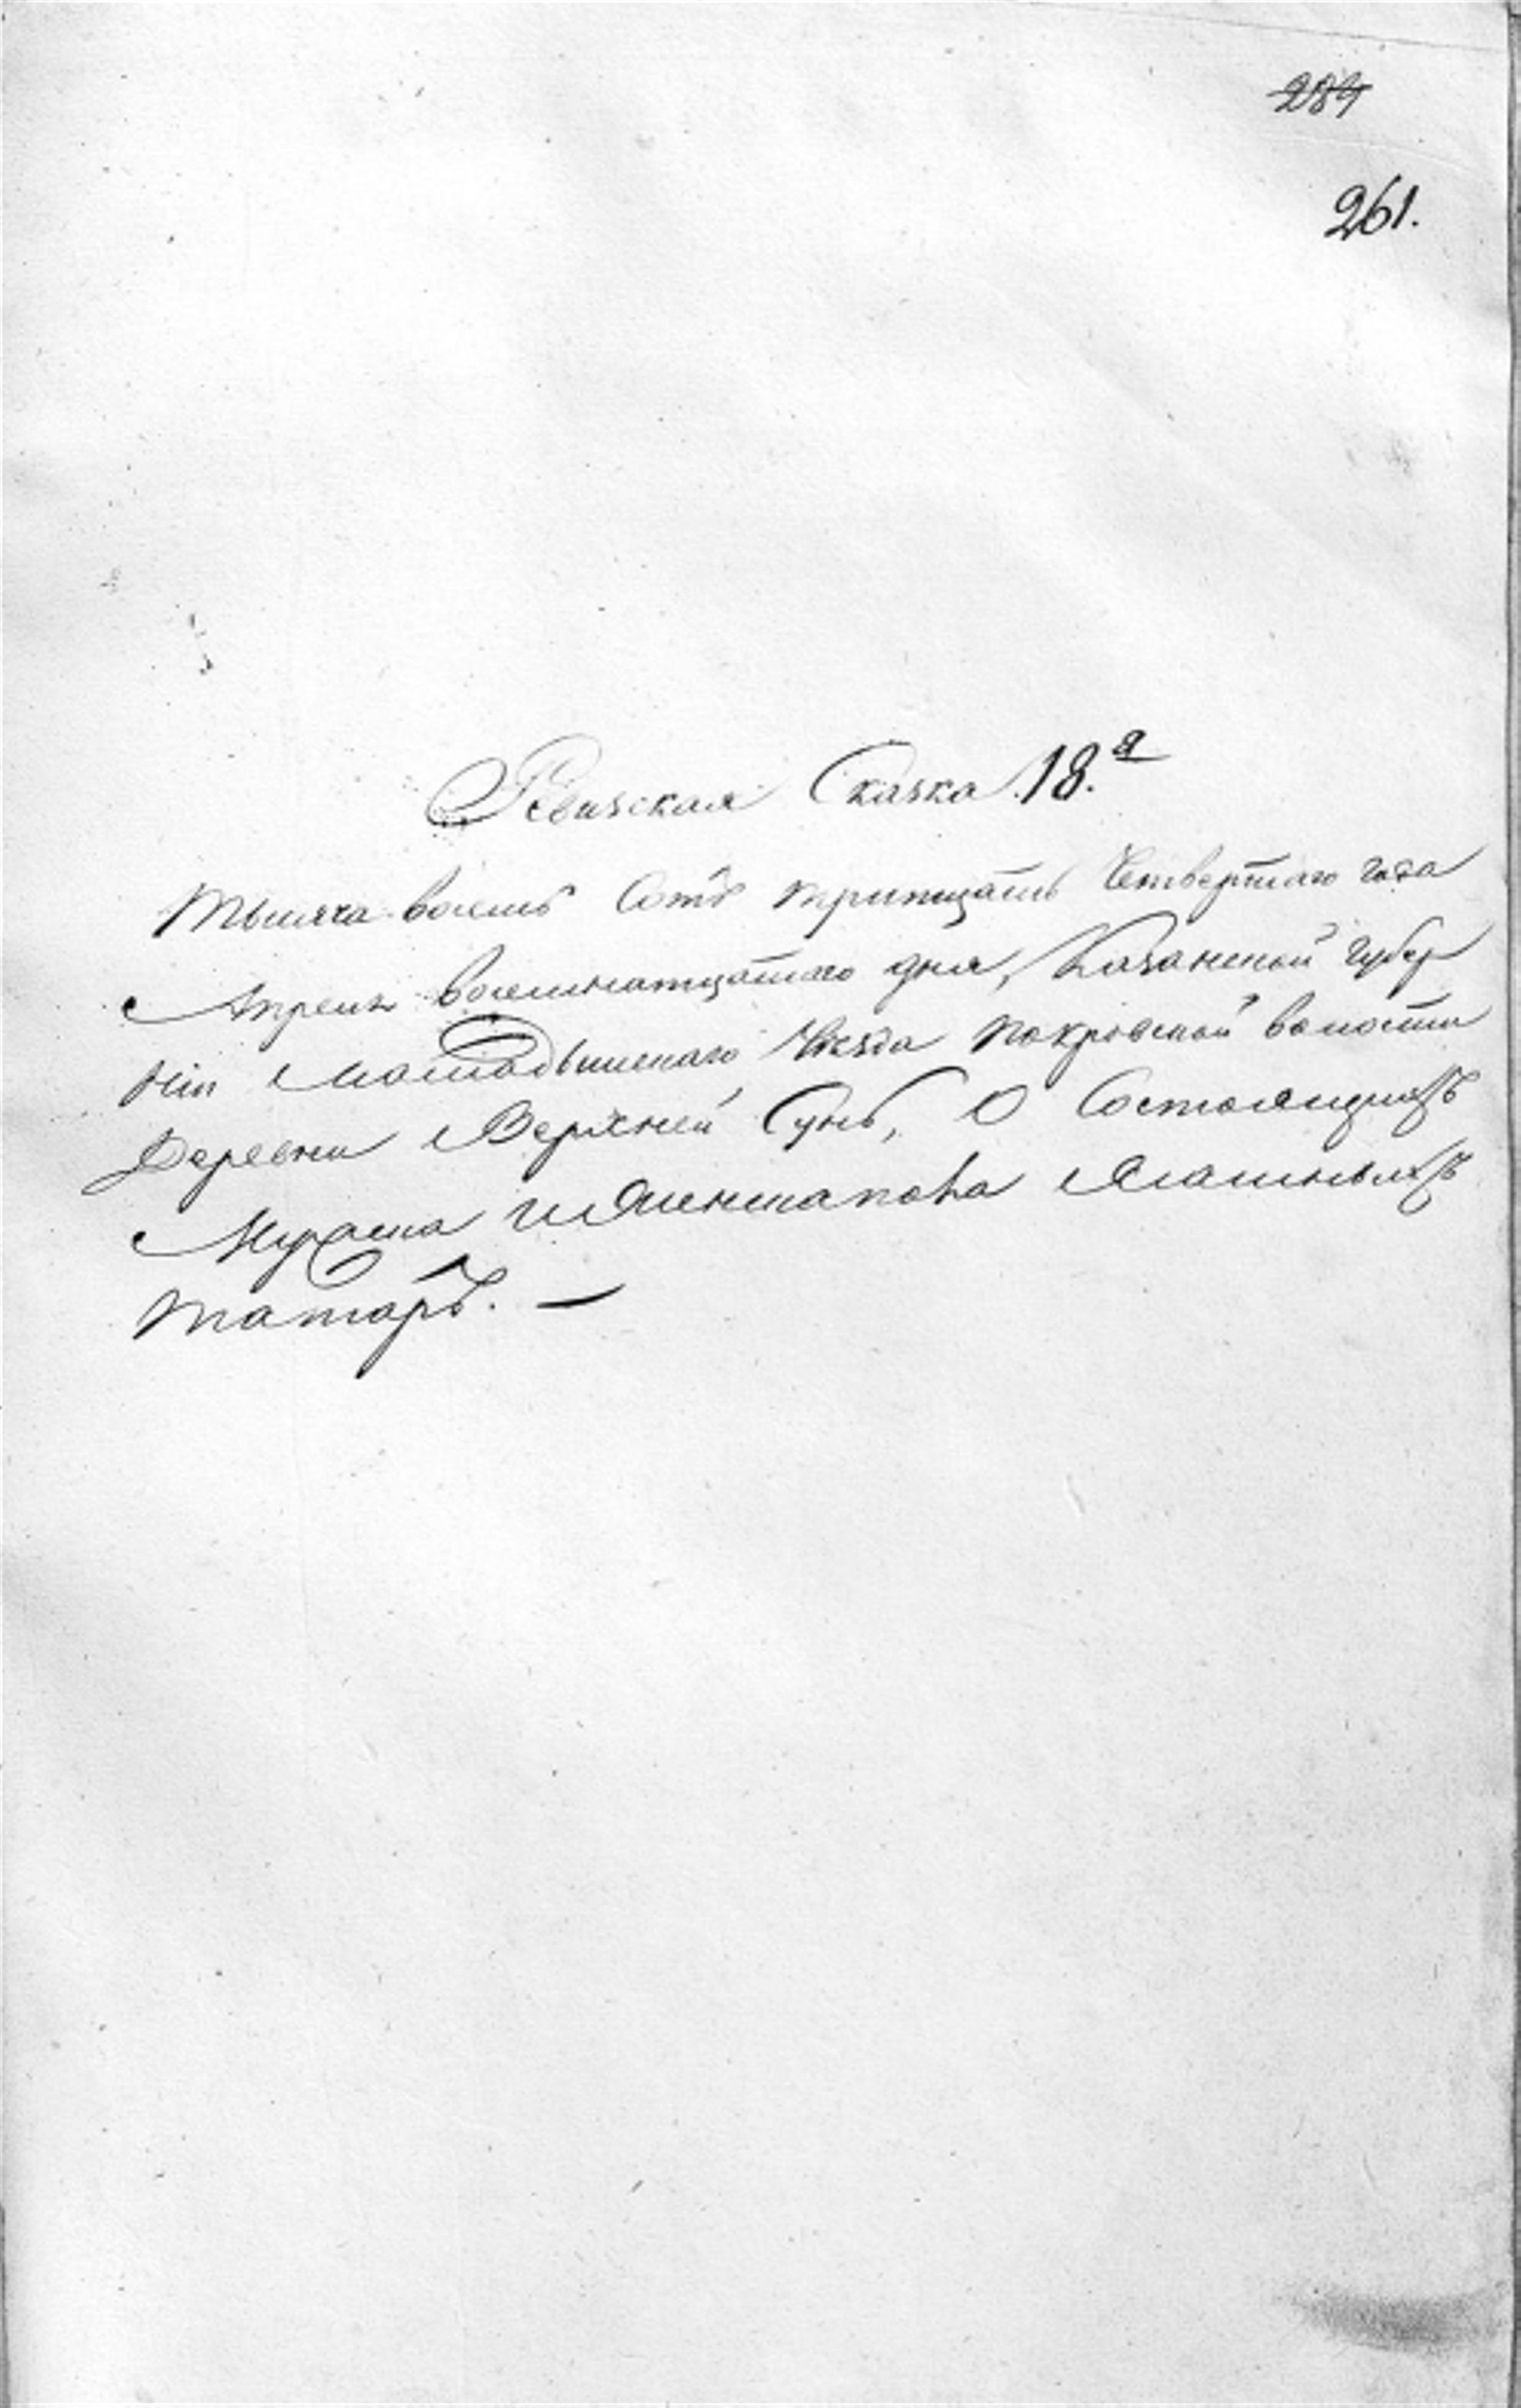 284
261.
Ревизская Сказка 18.я
Тысяча восемь Сотъ тритцать Четвертаго года
Апреля восемнатцатаго дня, Казанской губер
ніи Мамадышскаго Уѣзда Покровской волости
Деревни Верхней Сунь, О Состоящихъ
Мурзы Ясашныхъ
татаръ. —